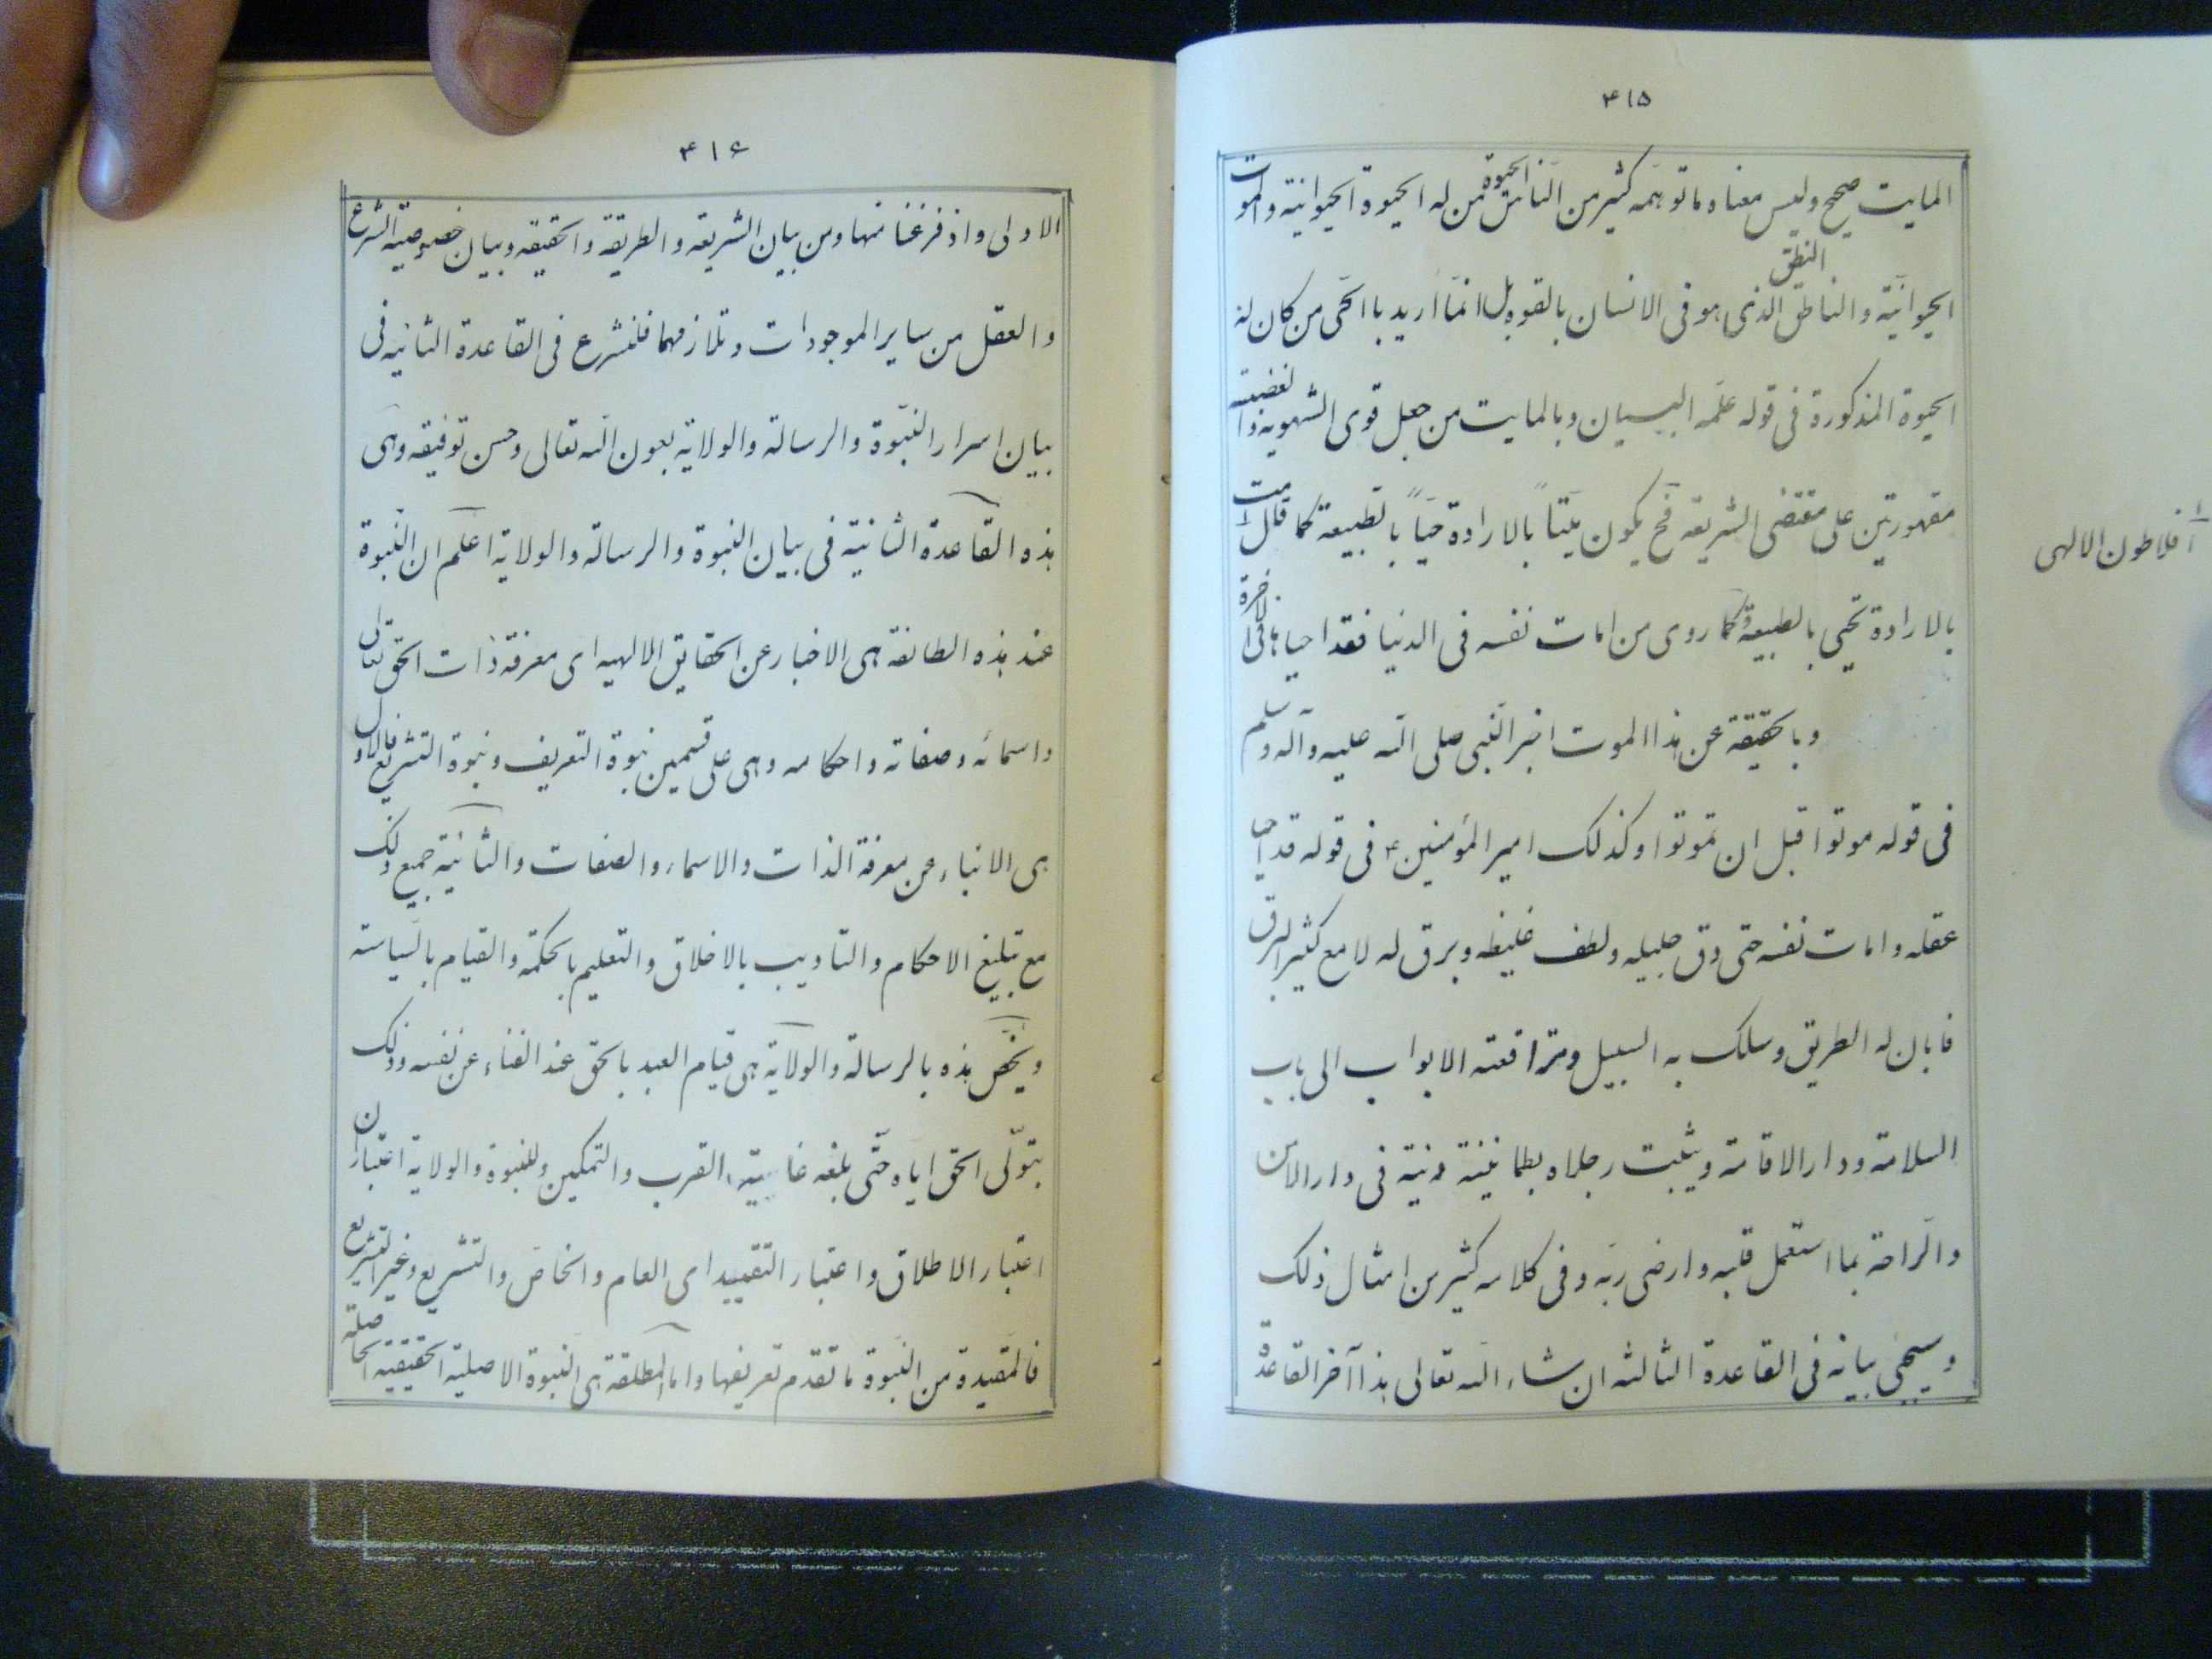 ۴۱۵
المایت صحیح ولیس معناه ما توهمه کثیر من النّاس الحیوة من له الحیوة الحیوانیّة والموت
الحیوانیّة والناطق النطق الذی هو فی الانسان بالقوه بل انما ارید با الحّی من کان له
الحیوة المذکورة فی قوله علّمه البیان وبالمایت من جعل قوی الشهویه والغضبیه
مقهورتین علی مقتضی الشریعه فح یکون میّتاً بالارادة حیّاً بالطبیعة کما قال مت
افلاطون الالهی
بالارادة تحیی بالطبیعة وکما روی من امات نفسه فی الدنیا فقد احیاها فی الاخرة
وبالحقیقة عن هذا الموت اخبر النّبی صلی الله علیه وآله وسلم
فی قوله موتوا قبل ان تموتوا وکذلک امیر المؤمنین ع فی قوله قد احیا
عقله وامات نفسه حتی دق جلیله ولطف غلیظه وبرق له لامع کثیر البرق
فابان له الطریق وسلک به السبیل وتدافعته الابواب الی باب
السلامة ودار الاقامة ویثبت رجلاه بطمانینة بدنیة فی دار الامن
والرّاحة بما استعمل قلبه وارضی ربّه وفی کلامه کثیر من امثال ذلک
وسیجئ بیانه فی القاعدة الثالثه ان شاء الله تعالی هذا آخر القاعدة
۴۱۶
الاولی واذ فرغنا منها ومن بیان الشریعه والطریقة والحقیقه وبیان خصوصیّة الشرع
والعقل من سایر الموجودات وتلازمهما فلنشرع فی القاعدة الثانیه فی
بیان اسرار النّبوة والرسالة والولایة بعون الله تعالی وحسن توفیقه وهی
هذه القاعدة الثانیّة فی بیان النبوة والرسالة والولایة اعلم ان النّبوة
عند هذه الطائفة هی الاخبار عن الحقایق الالهیه ای معرفة ذات الحق تعالی
واسمائه وصفاته واحکامه وهی علی قسمین نبوة التعریف ونبوة التشریع فالاول
هی الانباء عن معرفة الذات والاسماء والصفات والثانیّة جمیع ذلک
مع تبلیغ الاحکام والتادیب بالاخلاق والتعلیم بالحکمة والقیام بالسّیاسة
ویخّص هذه بالرسالة والولایّة هی قیام العبد بالحق عند الفناء عن نفسه وذلک
بتولّی الحق ایّاه حتّی یبلغه غایة القرب والتمکین وللنبوة والولایة اعتباران
اعتبار الاطلاق واعتبار التقیید ای العام والخاصّ والتشریع وغیر التشریع
فالمقیدة من النّبوة ما تقدم تعریفها واما المطلقة هی النّبوة الاصلیة الحقیقیه الحاصله